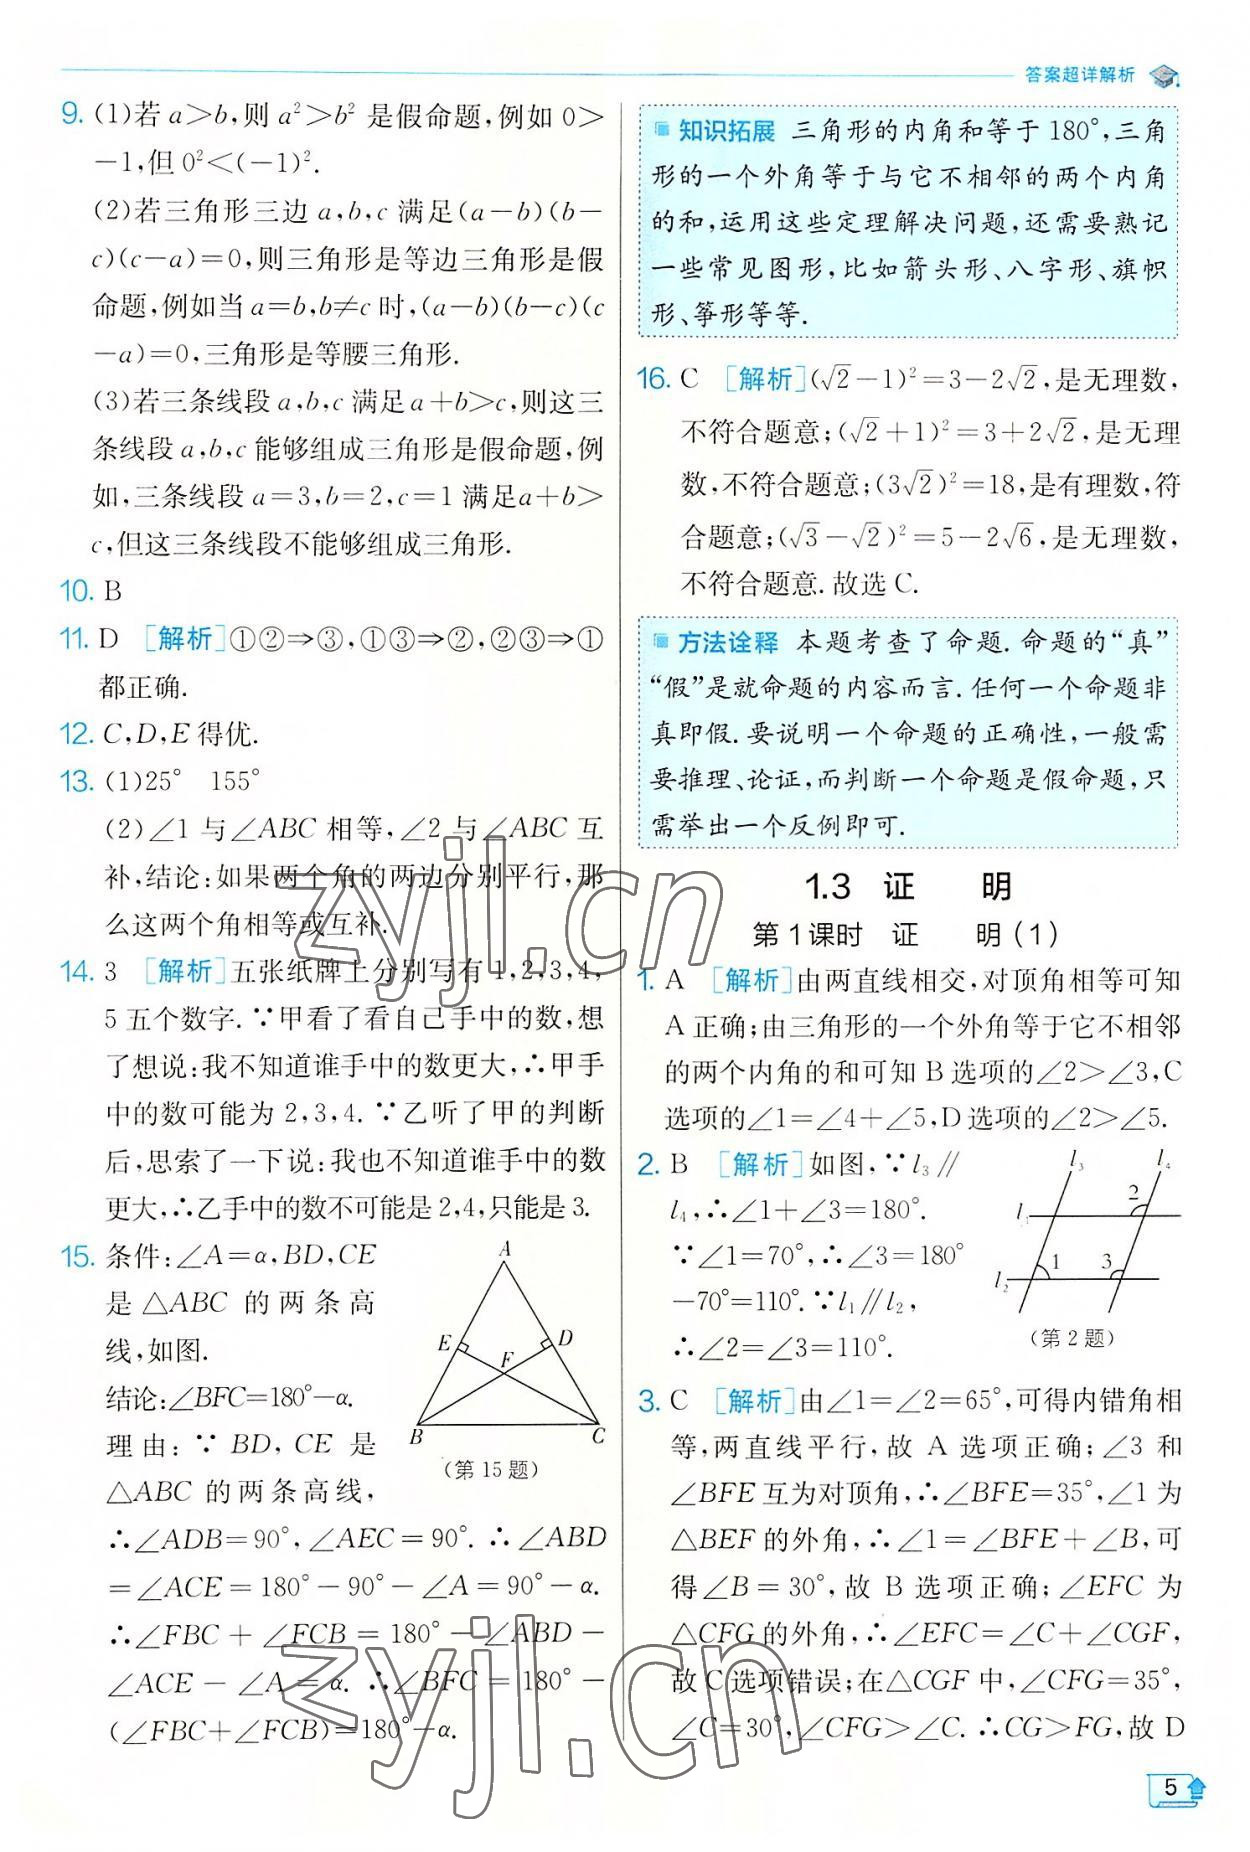 答案超详解析
9. (1)若 a>b,则 a²>b² 是假命题,例如 0>
-1,但 0²<(-1)².
(2)若三角形三边 a,b,c 满足(a-b)(b-
c)(c-a)=0,则三角形是等边三角形是假
命题,例如当 a=b,b≠c 时,(a-b)(b-c)(c
-a)=0,三角形是等腰三角形.
(3)若三条线段 a,b,c 满足 a+b>c,则这三
条线段 a,b,c 能够组成三角形是假命题,例
如,三条线段 a=3,b=2,c=1 满足a+b>
c,但这三条线段不能够组成三角形.
10. B
11. D [解析]①②⇒③,①③⇒②,②③⇒①
都正确.
12. C,D,E 得优.
13. (1)25° 155°
(2)∠1 与∠ABC 相等,∠2 与∠ABC 互
补,结论:如果两个角的两边分别平行,那
么这两个角相等或互补.
14. 3 [解析]五张纸牌上分别写有 1,2,3,4,
5 五个数字.∵甲看了看自己手中的数,想
了想说:我不知道谁手中的数更大,∴甲手
中的数可能为 2,3,4.∵乙听了甲的判断
后,思索了一下说:我也不知道谁手中的数
更大,∴乙手中的数不可能是 2,4,只能是 3.
15. 条件:∠A=α,BD,CE
是△ABC 的两条高
线,如图.
结论:∠BFC=180°-α.
理由:∵BD,CE 是
△ABC 的两条高线,
A
E
D
F
B
C
(第 15 题)
∴∠ADB=90°,∠AEC=90°.∴∠ABD
=∠ACE=180°-90°-∠A=90°-α.
∴∠FBC+∠FCB=180°-∠ABD-
∠ACE-∠A=α.∴∠BFC=180°-
(∠FBC+∠FCB)=180°-α.
知识拓展 三角形的内角和等于 180°,三角
形的一个外角等于与它不相邻的两个内角
的和,运用这些定理解决问题,还需要熟记
一些常见图形,比如箭头形、八字形、旗帜
形、筝形等等.
16. C [解析](√2-1)²=3-2√2,是无理数,
不符合题意;(√2+1)²=3+2√2,是无理
数,不符合题意;(3√2)²=18,是有理数,符
合题意;(√3-√2)²=5-2√6,是无理数,
不符合题意.故选 C.
方法诠释 本题考查了命题.命题的“真”
“假”是就命题的内容而言.任何一个命题非
真即假.要说明一个命题的正确性,一般需
要推理、论证,而判断一个命题是假命题,只
需举出一个反例即可.
1.3 证 明
第 1 课时 证 明(1)
1. A [解析]由两直线相交,对顶角相等可知
A 正确;由三角形的一个外角等于它不相邻
的两个内角的和可知 B 选项的∠2>∠3,C
选项的∠1=∠4+∠5,D 选项的∠2>∠5.
2. B [解析]如图,∵l₃∥
l₄,∴∠1+∠3=180°.
∵∠1=70°,∴∠3=180°
-70°=110°.∵l₁∥l₂,
∴∠2=∠3=110°.
l₃
l₄
2
l₁
1
3
l₂
(第 2 题)
3. C [解析]由∠1=∠2=65°,可得内错角相
等,两直线平行,故 A 选项正确;∠3 和
∠BFE 互为对顶角,∴∠BFE=35°,∠1 为
△BEF 的外角,∴∠1=∠BFE+∠B,可
得∠B=30°,故 B 选项正确;∠EFC 为
△CFG 的外角,∴∠EFC=∠C+∠CGF,
故 C 选项错误;在△CGF 中,∠CFG=35°,
∠C=30°,∠CFG>∠C.∴CG>FG,故 D
5
zyjl.cn
zyjl.cn